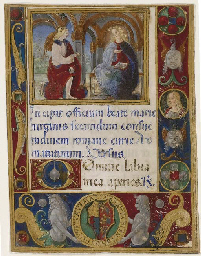 Incipit officium beate marie
virginis secundum consue
tudinem romane curie Ad
matutinum. Versus.
Domine labia
mea aperies. R.